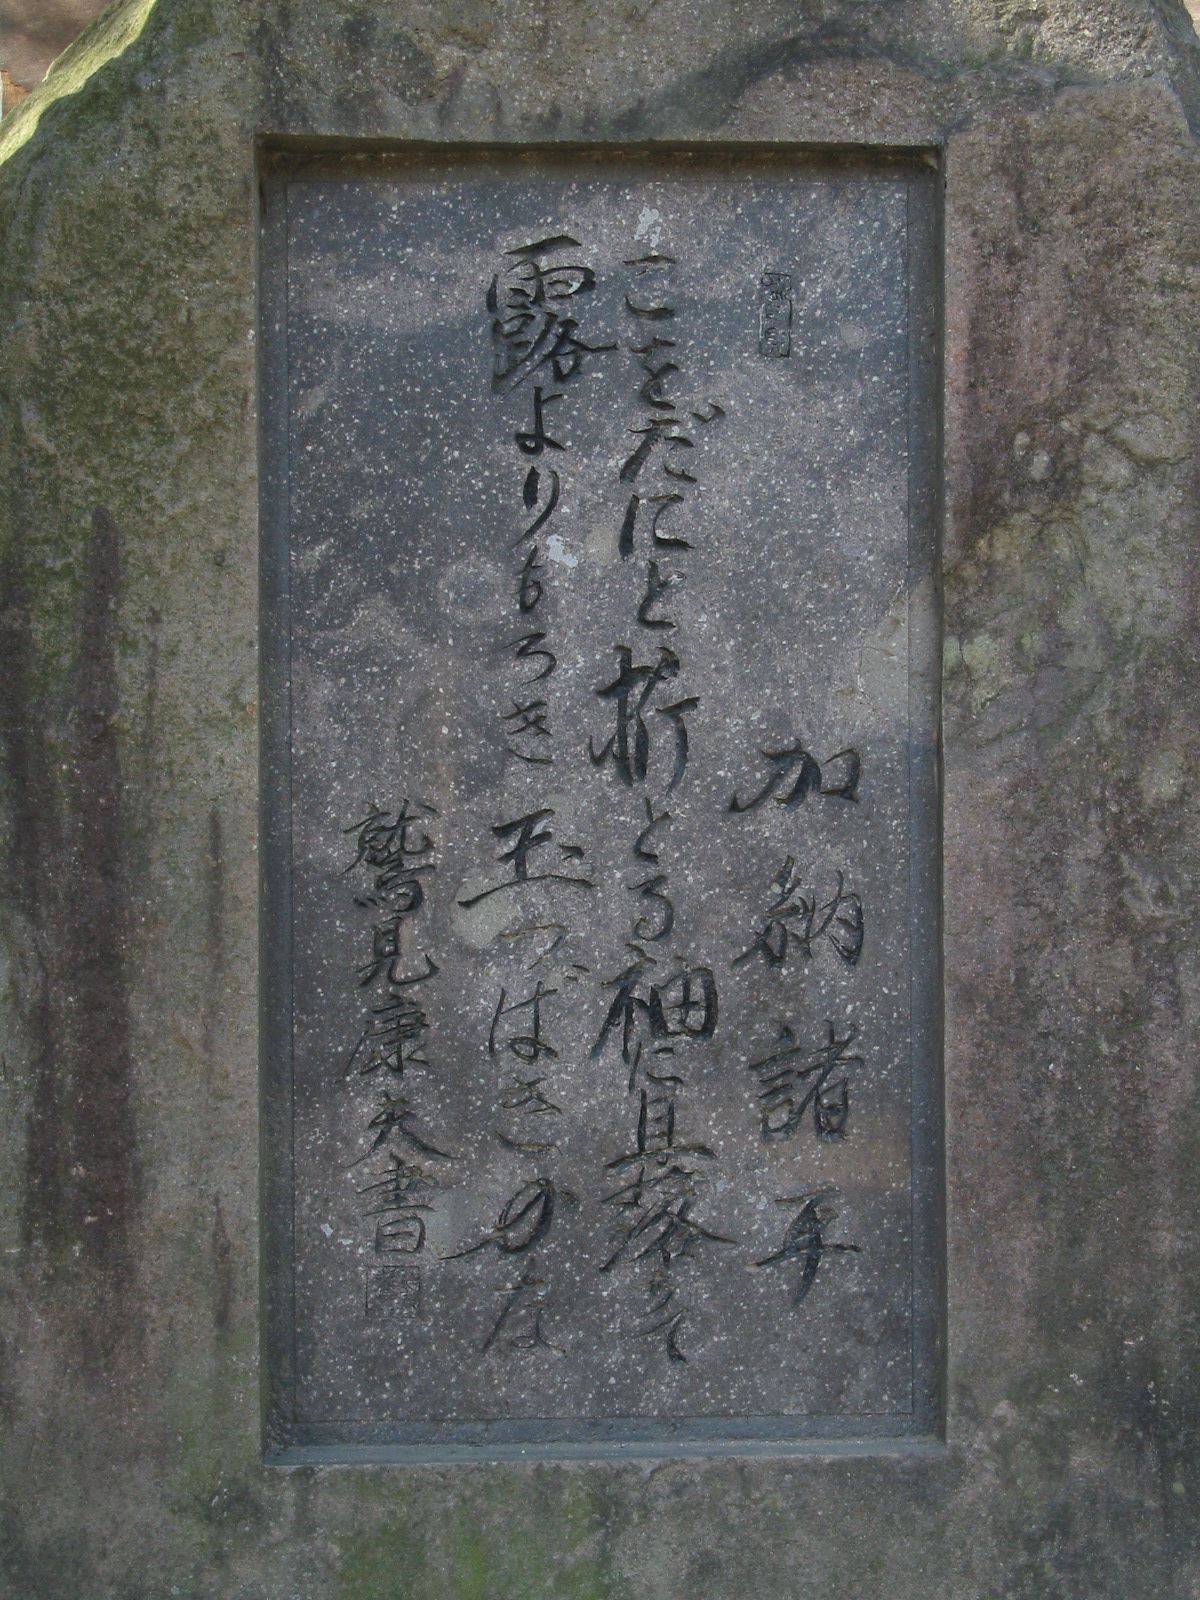 加納諸平
こをだにと折とる袖に且落て
露よりもろき玉つばきかな
鷲見康夫書